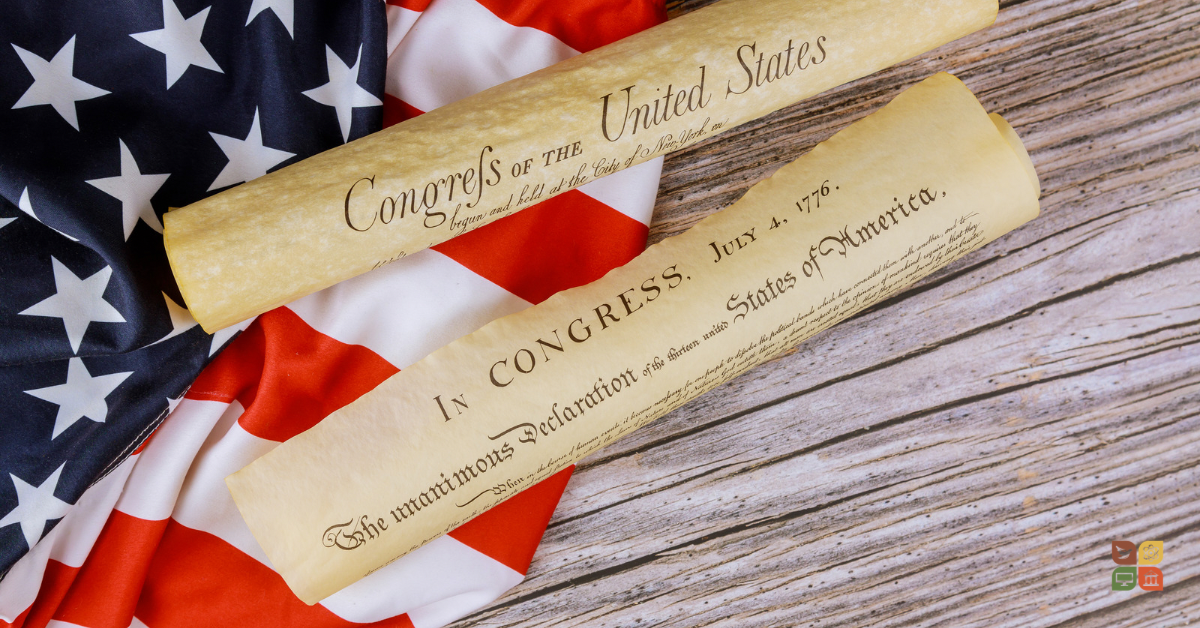 Congreſs OF THE United States
begun and held at the City of New-York, on
IN CONGRESS, JULY 4, 1776.
The unanimous Declaration of the thirteen united States of America,
When in the Course of human events, it becomes necessary for one people to dissolve the political bands which have connected them with another, and to